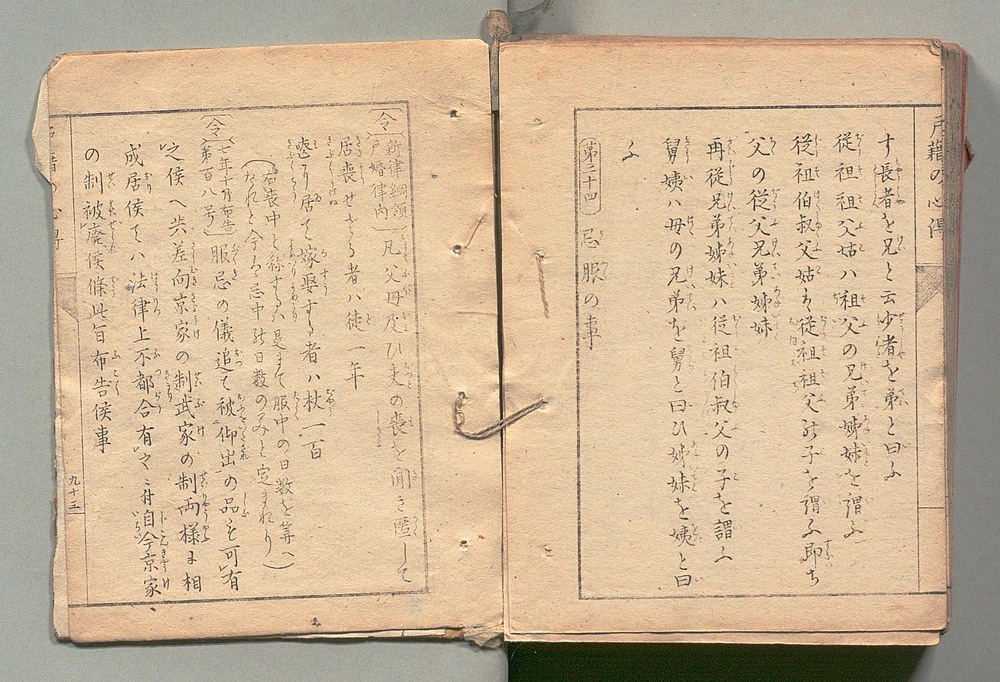 戸籍の心得
す長者を兄と云少者を弟と曰ふ
従祖祖父姑ハ祖父の兄弟姉妹を謂ふ
従祖伯叔父姑は従祖祖父の子を謂ふ即ち
父の従父兄弟姉妹
再従兄弟姉妹ハ従祖伯叔父の子を謂ふ
舅姨ハ母の兄弟を舅と曰ひ姉妹を姨と曰
ふ
(第三十四)忌服の事
(令)(新律綱領戸婚律内)凡父母及ひ夫の喪を聞き匿して
居喪せさる者ハ徒一年
喪に居て嫁娶する者ハ杖一百
(右喪中と称するハ是まて服中の日数を算へ
たれと今ハ忌中の日数のみと定まれり)
(令)(七年十月布告第百八号)服忌の儀追て被仰出の品も可有
之候ヘ共差向京家の制武家の制両様に相
成居候てハ法律上不都合有之ニ付自今京家
の制被廃候條此旨布告候事
九十三